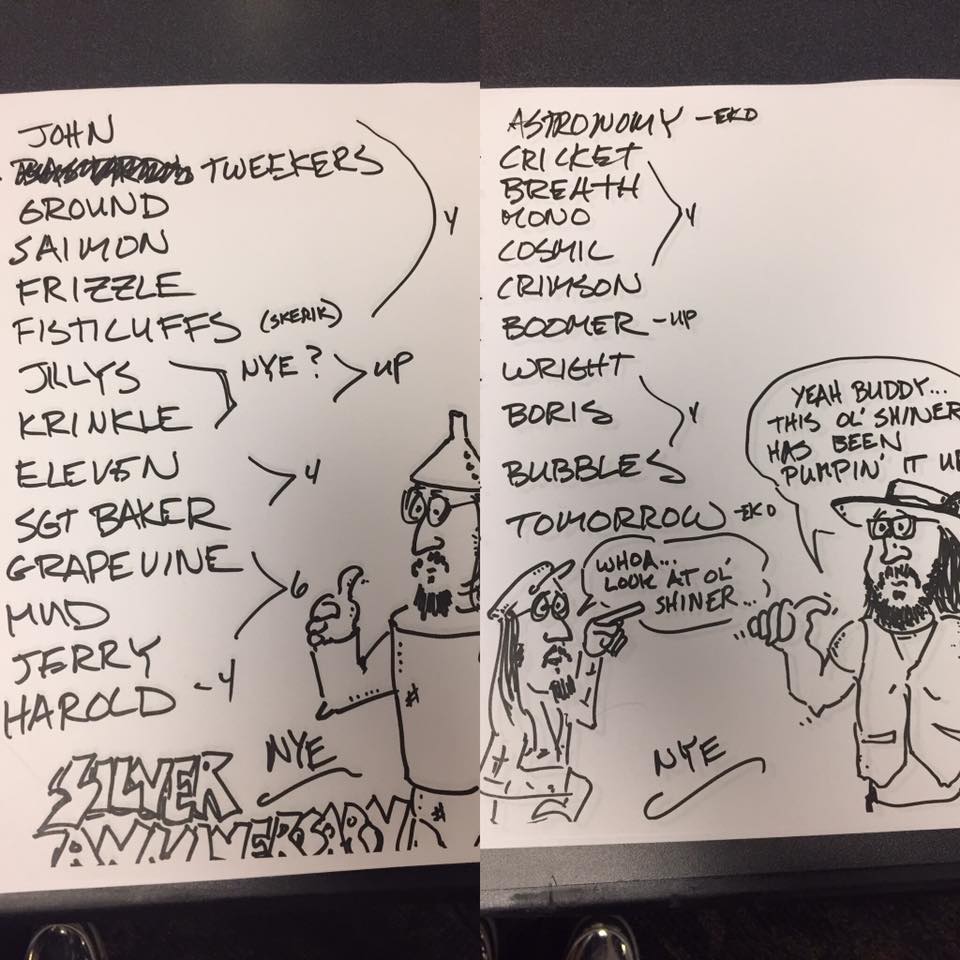 JOHN
TWEEKERS
GROUND
SALMON
FRIZZLE
FISTICUFFS (SKERIK)
4
JILLYS
KRINKLE
NYE? UP
ELEVEN
SGT BAKER
4
GRAPEVINE
MUD
JERRY
6
HAROLD - 4
NYE
SILVER
ANNIVERSARY
ASTRONOMY - EKD
CRICKET
BREATH
MONO
COSMIC
4
CRIMSON
BOOMER - UP
WRIGHT
BORIS
BUBBLES
4
TOMORROW - EKD
YEAH BUDDY...
THIS OL' SHINER
HAS BEEN
PUMPIN' IT UP
WHOA...
LOOK AT OL'
SHINER...
NYE